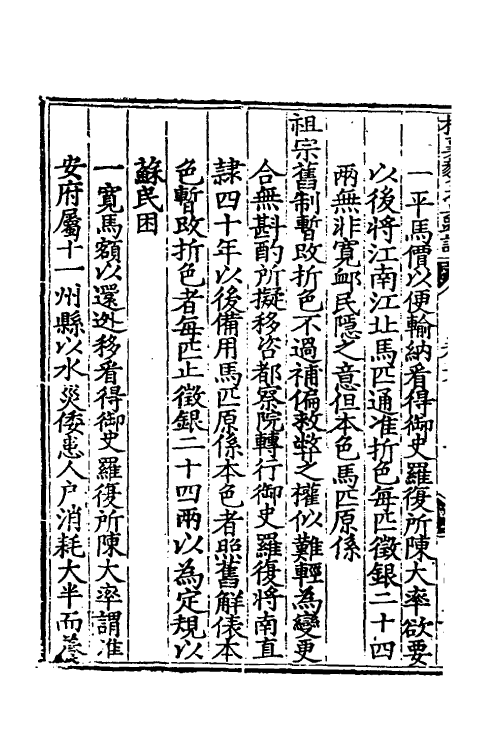 一平馬價以便輸納看得御史羅復所陳大率欲要
以後將江南江北馬匹通准折色每匹徵銀二十四
兩無非寬邮民隱之意但本色馬匹原係
祖宗舊制暫改折色不過補偏救弊之權似難輕為變更
合無斟酌所擬移咨都察院轉行御史羅復將南直
隷四十年以後備用馬匹原係本色者照舊解俵本
色暫改折色者每匹止徵銀二十四兩以為定規以
蘇民困
一寬馬額以還迯移看得御史羅復所陳大率謂淮
安府屬十一州縣以水災倭患人戶消耗大半而養